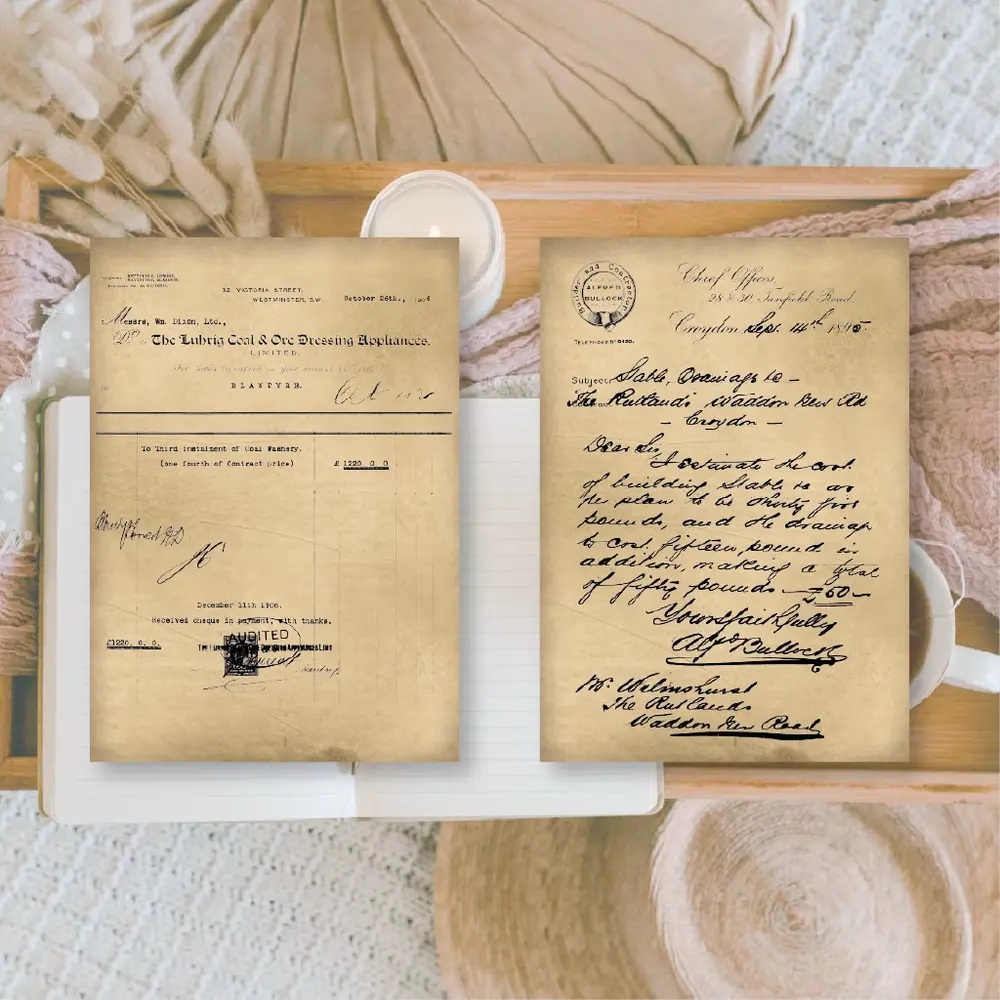 32 VICTORIA STREET,
WESTMINSTER, S.W. October 26th., 1906
Messrs, Wm. Dixon, Ltd.,
Dr. to The Luhrig Coal & Ore Dressing Appliances.
LIMITED.
BLANTYRE.
To Third instalment of Coal Washery.
(one fourth of Contract price) £ 1220 0 0
December 11th 1906.
Received cheque in payment, with thanks.
£1220. 0. 0.
AUDITED
Builder and Contractor
ALFRED
BULLOCK
TELEPHONE Nº 0180.
Chief Offices,
28 & 30, Tanfield Road
Croydon, Sept. 14th 1895
Subject Stable, Drainage &c –
The Rutlands Waddon New Rd
– Croydon –
Dear Sir,
I estimate the cost
of building Stable &c as
per plan to be thirty five
pounds, and the drainage
to cost fifteen pound in
addition, making a total
of fifty pounds – £50 –
Yours faithfully
Alfd Bullock
Mr. Welmshurst
The Rutlands
Waddon New Road